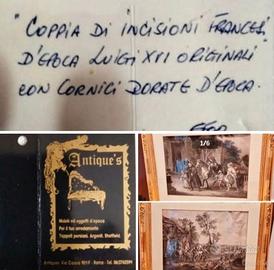 "COPPIA DI INCISIONI FRANCESI
D'EPOCA LUIGI XVI ORIGINALI
CON CORNICI DORATE D'EPOCA.
Antique's
Mobili ed oggetti d'epoca
Per il tuo arredamento
Tappeti persiani. Argenti. Sheffield.
1/6